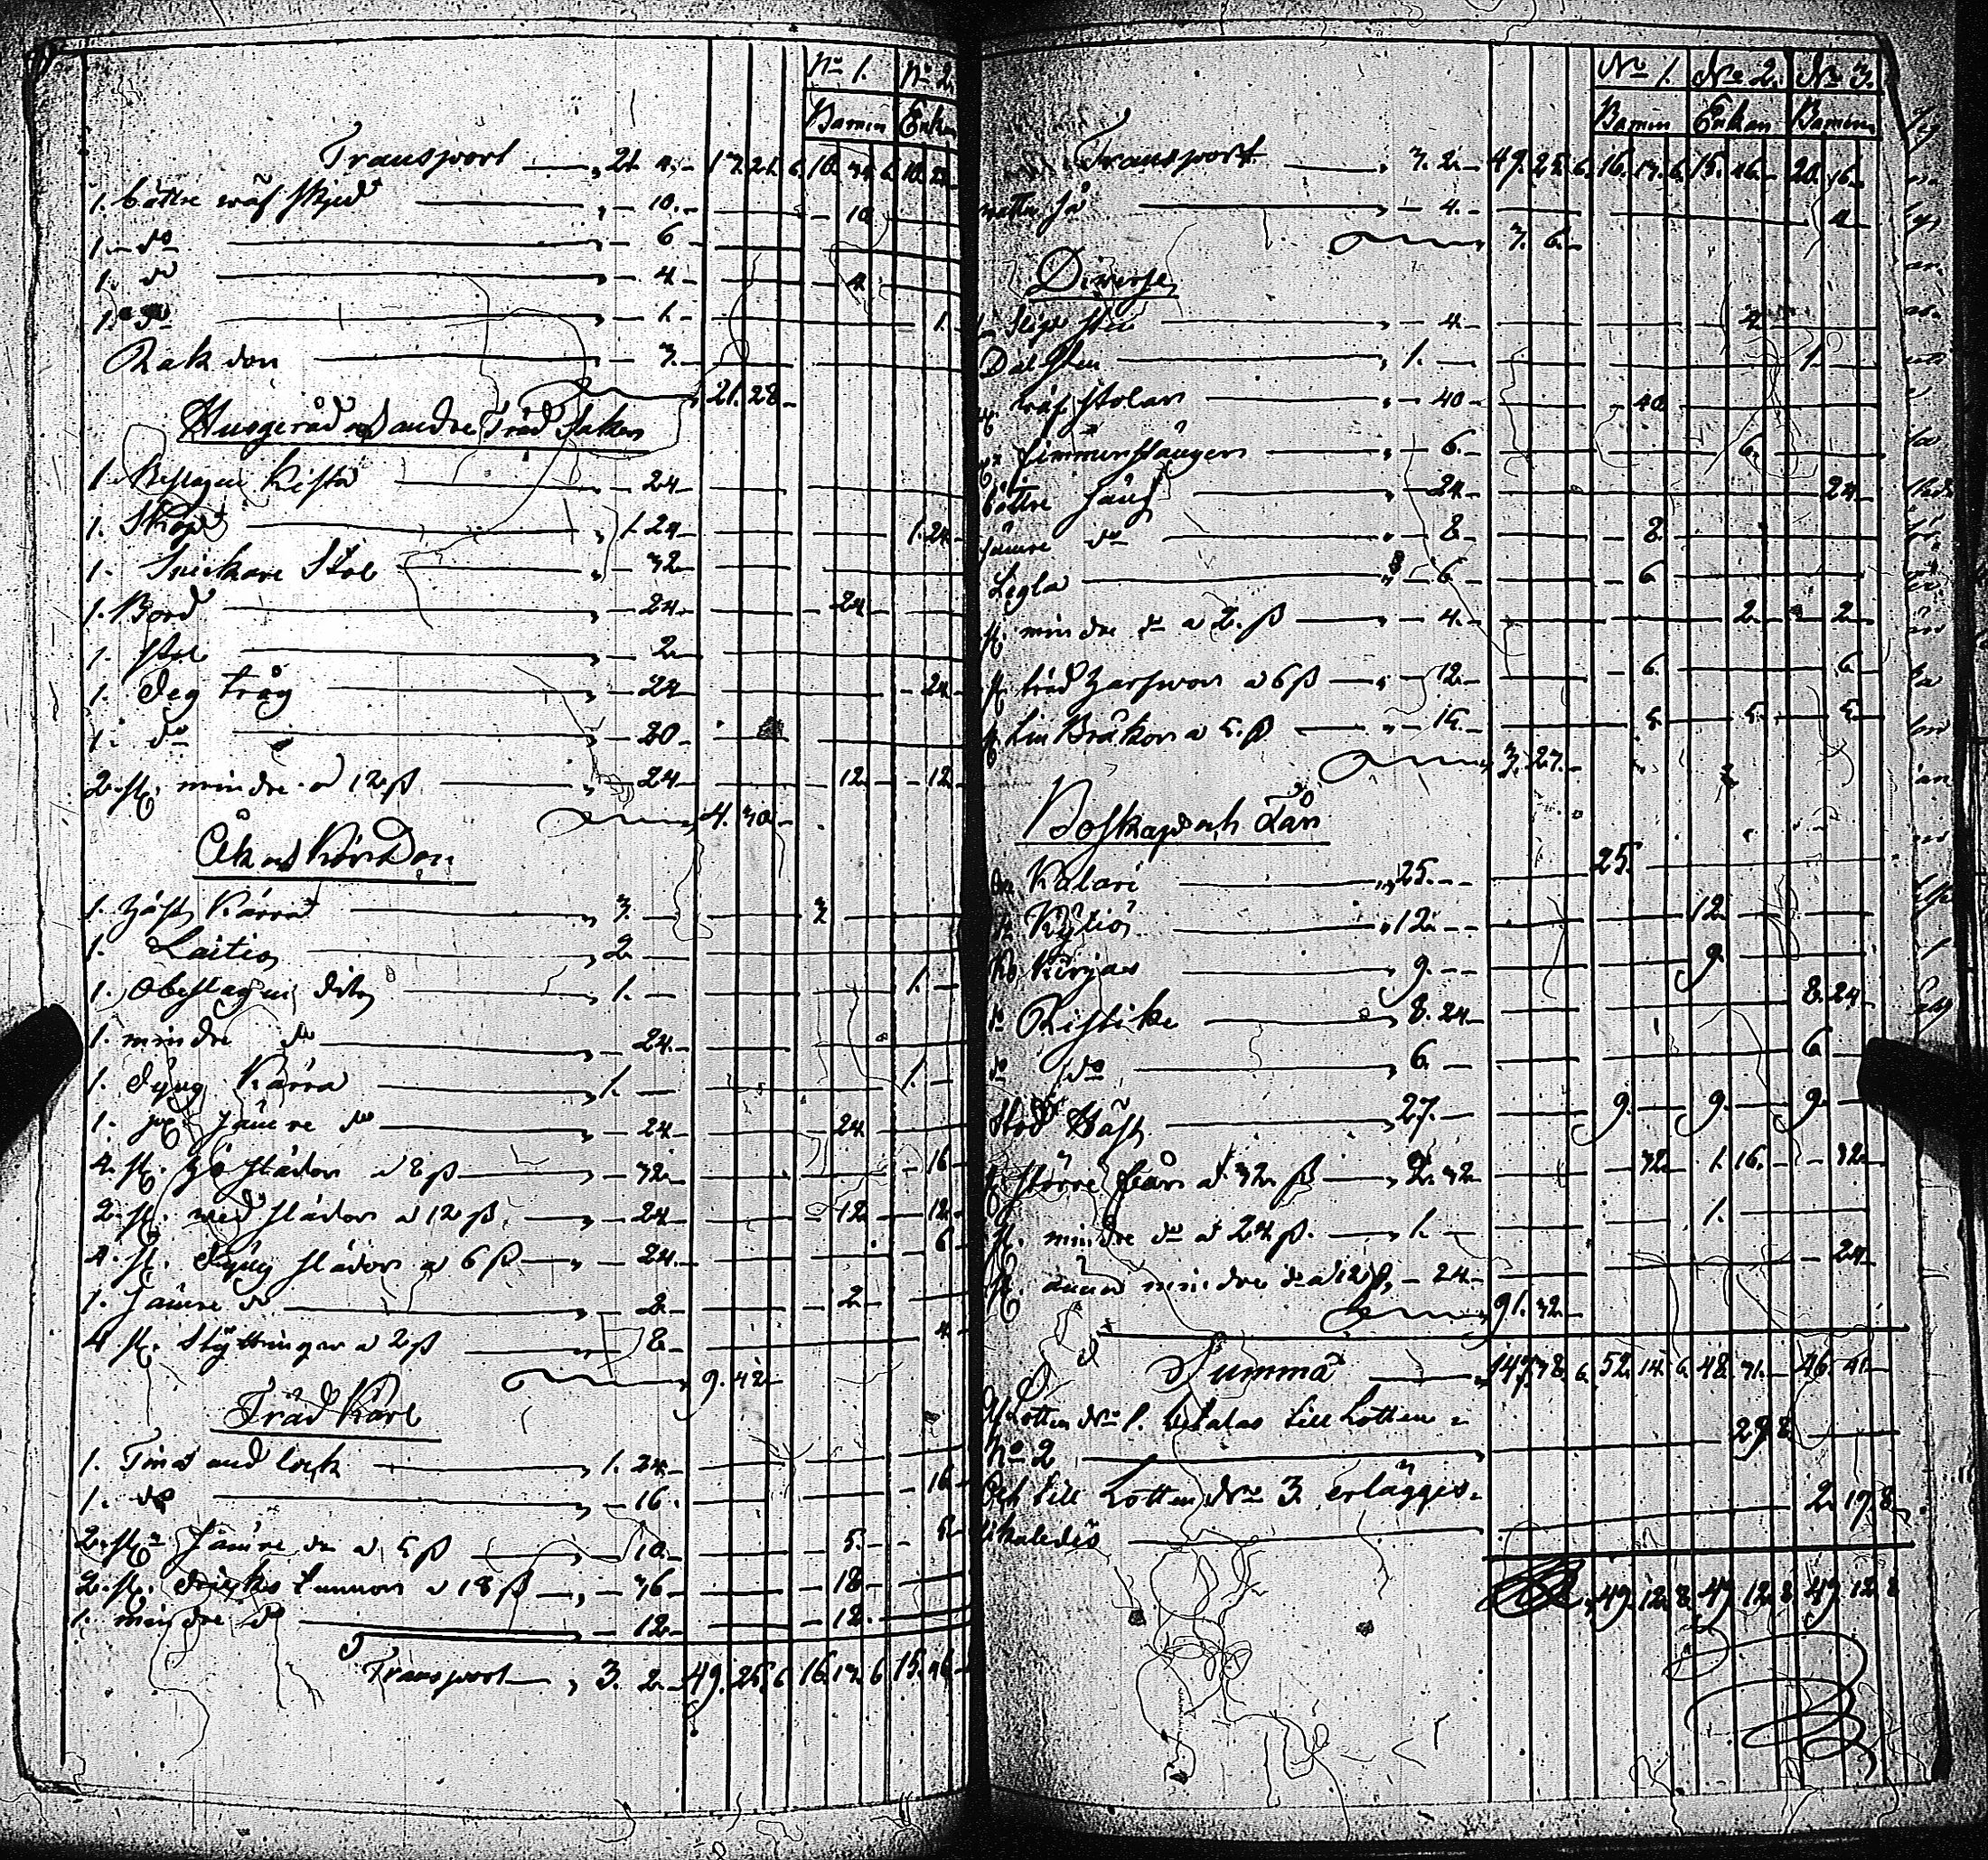 No 1. No 2.
Barnen Enkan
Transport 21. 4. 17. 21. 6. 10. 34. 6. 10. 22.
1. bättre wäf skjed 10. 10
1. do 6
1. do 4 4
1. do 1. 1.
Rak don 3.
21. 28
Husgeråd och andre Träd Saker
1. Beslagen Kista 24
1. Skåp 1. 24 1. 24
1. Snickare Stol 32
1. Bord 24 24
1. stol 2
1. Deg tråg 24 24
1. do 20
2. st. mindre a 12 ß 24 12 12
4. 30
Åk och Kördon
1. Häst Kärra 3. 3
1. Laitio 2
1. Obeslagen dito 1. 1.
1. mindre do 24
1. dyng Kärra 1. 1.
1. st. sämre do 24 24
4. st. hö slädor a 8 ß 32 16
2. st. ved slädor a 12 ß 24 12 12
4. st. dyng slädor a 6 ß 24 6
1. Sämre do 2 2
4 st. Stöttingar a 2 ß 8 4
9. 42
Träd Kärl
1. Tina med lock 1. 24
1. do 16. 16
2. st. Sämre do a 5 ß 10 5. 5
2. st. dricks tunnor a 18 ß 36 18
1. mindre do 12 12.
Transport 3. 2. 49. 25. 6 16. 13. 6 15. 46
No 1. No 2. No 3.
Barnen Enkan Barnen
Transport 3. 2. 49. 25. 6. 16. 13. 6. 15. 46. 20. 16.
watten så 4. 4
3. 6.
Diverse
Slip sten 4. 4
Dal sten 1. 1.
wäf stolar 40 40
timmerstänger 6. 6.
bättre säng 24 24
sämre do 8 8.
Legla 6. 6
st. mindre do a 2. ß 4. 2 2
st. träd harfwor a 6 ß 12 6. 6
st. Lin Bråkor a 5. ß 15 5. 5. 5
3. 27.
Boskap och Får
Ko Kalari 25. 25.
Kytiö 12. 12
Ko Kirjas 9. 9.
Ristike 8. 24 8. 24
do 6 6
Stod Häst 27. 9. 9. 9.
st. större Får a 32 ß 3. 32 32 1. 16. 32
st. mindre do a 24 ß. 1. 1.
st. ännu mindre do a 12 ß 24 24
91. 32
Summa 147. 38. 6. 52. 14. 6. 48. 31. 46. 41
Af Lotten No 1. betalas till Lotten
No 2 29. 8
Och till Lotten No 3. erlägges
likaledes 2. 19. 8
49. 12. 8. 49. 12. 8. 49. 12. 8